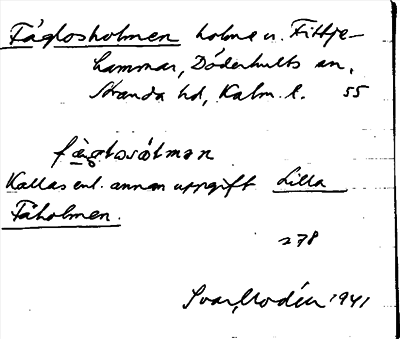 Fåglosholmen holme v. Fittje-
hammar, Döderhults sn,
Stranda hd, Kalm. l. 55
fåglosólman
Kallas enl. annan uppgift Lilla
Fåholmen.
278
Ivar Modéer 1941